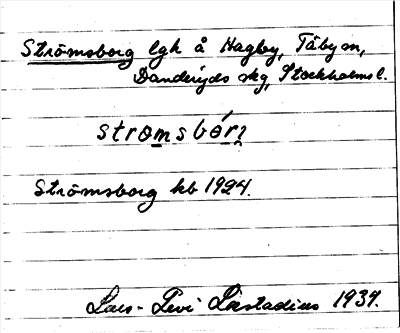 Strömsborg lgh å Hagby, Täby sn,
Danderyds skg, Stockholms l.
stromsbór2
Strömsborg hb 1924.
Lars-Levi Læstadius 1934.